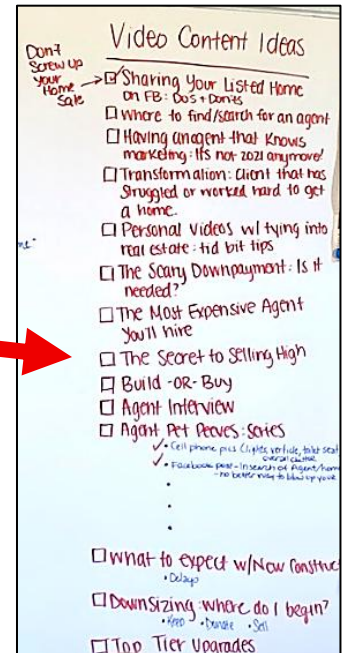 Video Content Ideas
Don't
Screw up
your
Home
Sale
Sharing Your Listed Home
on FB: Dos + Don'ts
Where to find/search for an agent
Having an agent that knows
marketing: It's not 2021 anymore!
Transformation: Client that has
struggled or worked hard to get
a home.
Personal videos w/ tying into
real estate: tid bit tips
The Scary Downpayment: Is it
needed?
The Most Expensive Agent
You'll hire
The Secret to Selling High
Build -OR- Buy
Agent Interview
Agent Pet Peeves: series
• Cell phone pics (lights, verticle, toilet seat
overall clutter
• Facebook post - In search of Agent/hom
- no better way to blow up your
What to expect w/ New Construc
• Delays
Downsizing: where do I begin?
• Keep • Donate • Sell
Top Tier Upgrades